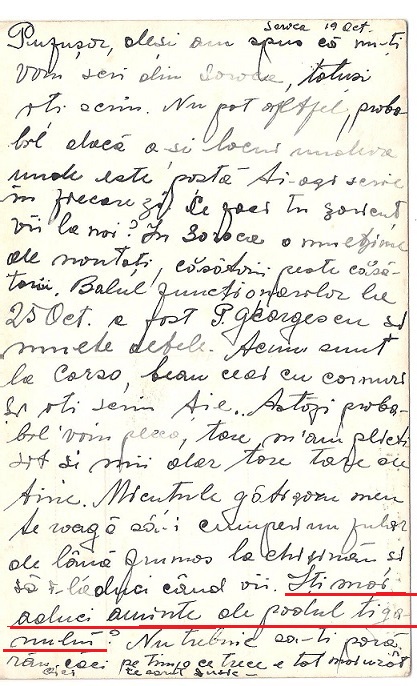 Soroca 19 Oct.
Pufușor, deși am spus că nu-ți
voiu scri din Soroca, totuși
îți scriu. Nu pot altfel, proba-
bil dacă a-și locui undeva
unde este poștă ți-ași scrie
în fiecare zi. Ce faci tu
vii la noi? În Soroca o mulțime
de noutăți, căsătorii peste căsă-
torii. Balul funcționarilor pe
25 Oct. a fost P. Georgescu și
multe altele. Acum sunt
la Corso, beau ceai cu
și îți scriu ție. Astăzi proba-
bil voiu pleca, tare m'am plicti
sit și mi-i dor tare tare de
tine. Micuțule meu
te roagă să-i cumperi un fular
de lână frumos la chișinău și
să i-l aduci când vii. Îți mai
aduci aminte de podul țiga
nului? Nu trebuie sa-ți pară
rău, căci pe timp ce trece e tot